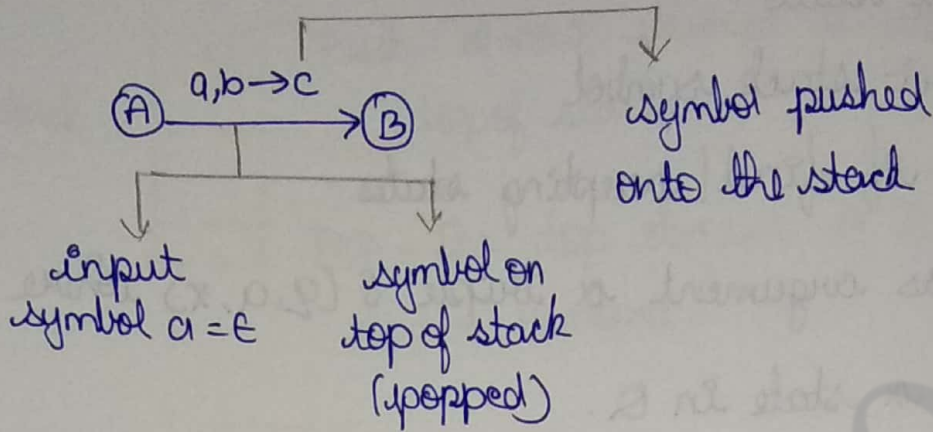 a,b→c
A
B
symbol pushed
onto the stack
input
symbol a = ϵ
symbol on
top of stack
(popped)